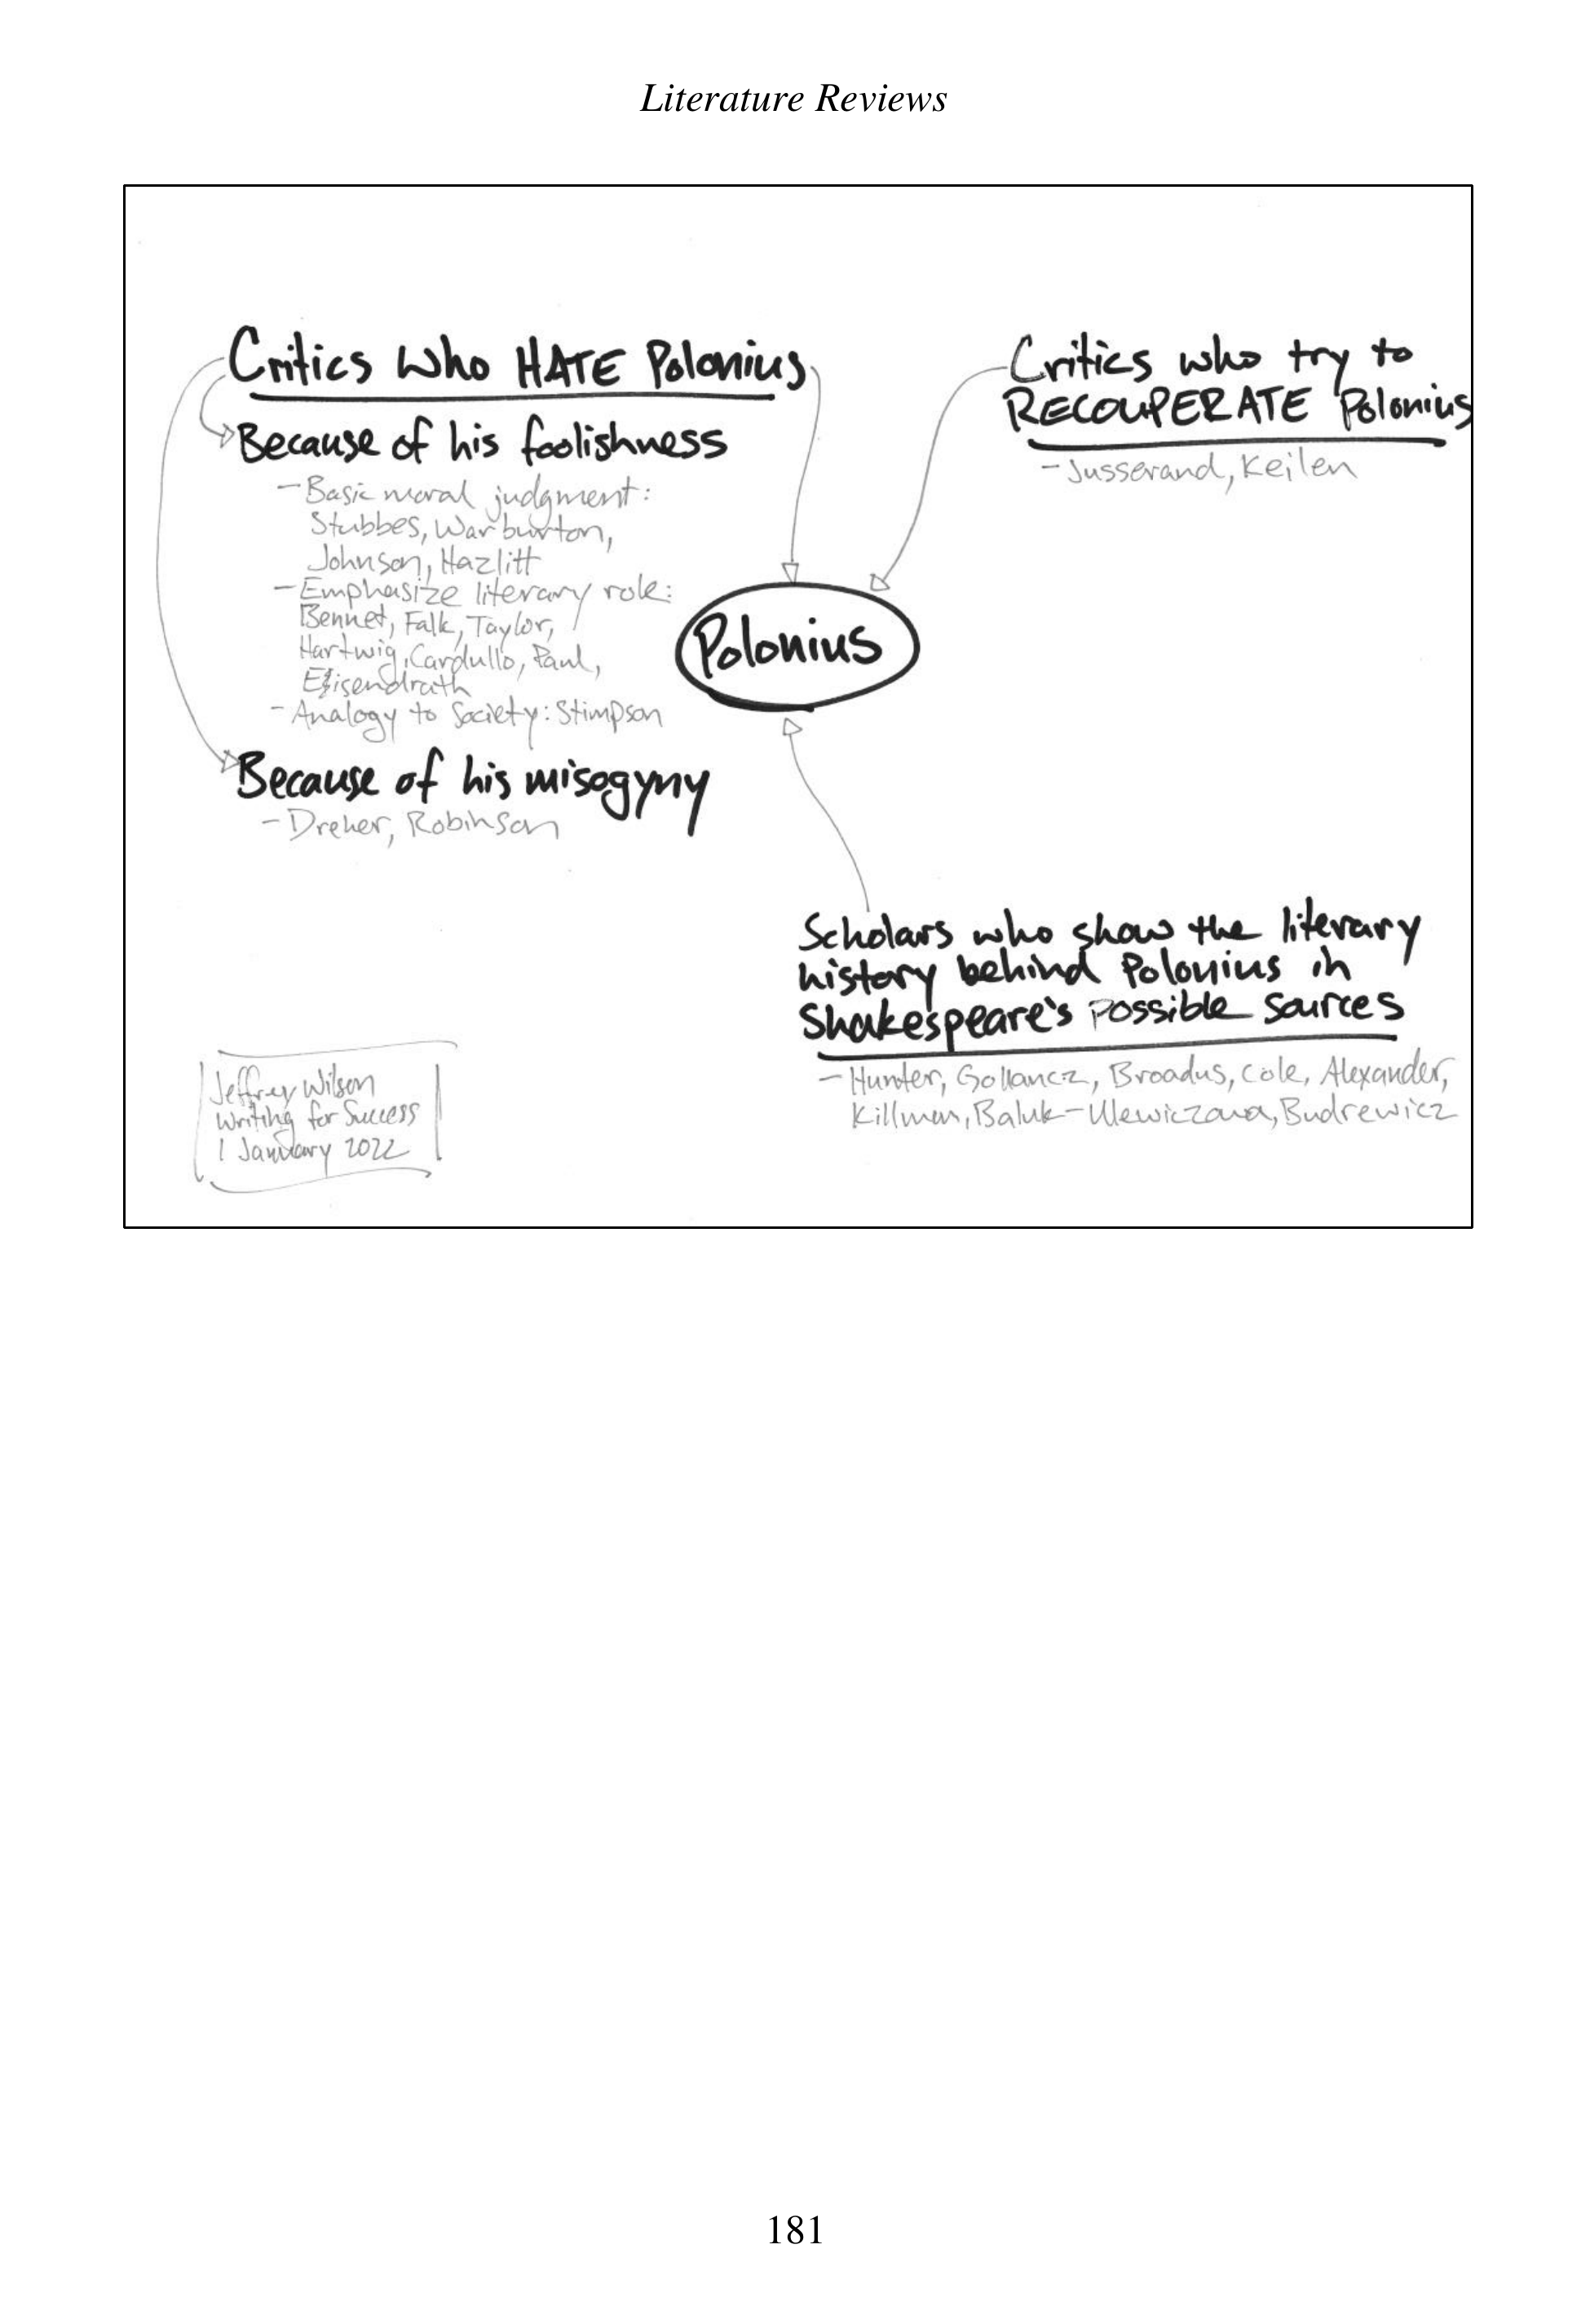 Literature Reviews
Critics who HATE Polonius
Because of his foolishness
- Basic moral judgment:
Stubbes, Warburton,
Johnson, Hazlitt
- Emphasize literary role:
Bennet, Falk, Taylor,
Hartwig, Cardullo, Paul,
Eisendrath
- Analogy to Society: Stimpson
Because of his misogyny
- Dreher, Robinson
Critics who try to
RECOUPERATE Polonius
- Jusserand, Keilen
Polonius
Scholars who show the literary
history behind Polonius in
Shakespeare's possible sources
- Hunter, Gollancz, Broadus, Cole, Alexander,
Killman, Baluk-Ulewiczowa, Budrewicz
Jeffrey Wilson
Writing for Success
1 January 2022
181